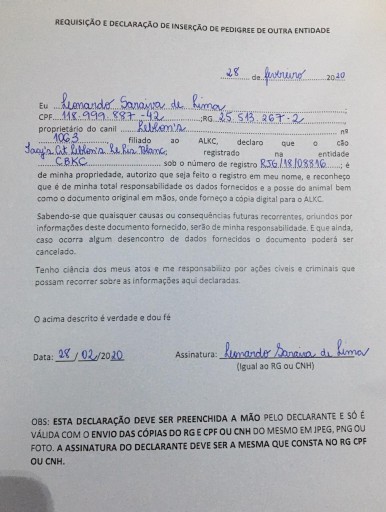 REQUISIÇÃO E DECLARAÇÃO DE INSERÇÃO DE PEDIGREE DE OUTRA ENTIDADE
28 de fevereiro 2020
Eu Leonardo Saraiva de Lima
CPF 118.999.887-42 ;RG 25.513.267-2
proprietário do canil Leblon's nº
1063 filiado ao ALKC, declaro que o cão
At Leblon's Le Ris Blanc registrado na entidade
CBKC sob o número de registro RJG/18/08816 ; é
de minha propriedade, autorizo que seja feito o registro em meu nome, e reconheço
que é de minha total responsabilidade os dados fornecidos e a posse do animal bem
como o documento original em mãos, onde forneço a cópia digital para o ALKC.
Sabendo-se que quaisquer causas ou consequências futuras recorrentes, oriundos por
informações deste documento fornecido, serão de minha responsabilidade. E que ainda,
caso ocorra algum desencontro de dados fornecidos o documento poderá ser
cancelado.
Tenho ciência dos meus atos e me responsabilizo por ações cíveis e criminais que
possam recorrer sobre as informações aqui declaradas.
O acima descrito é verdade e dou fé
Data: 28/02/2020 Assinatura: Leonardo Saraiva de Lima
(Igual ao RG ou CNH)
OBS: ESTA DECLARAÇÃO DEVE SER PREENCHIDA A MÃO PELO DECLARANTE E SÓ É
VÁLIDA COM O ENVIO DAS CÓPIAS DO RG E CPF OU CNH DO MESMO EM JPEG, PNG OU
FOTO. A ASSINATURA DO DECLARANTE DEVE SER A MESMA QUE CONSTA NO RG CPF
OU CNH.